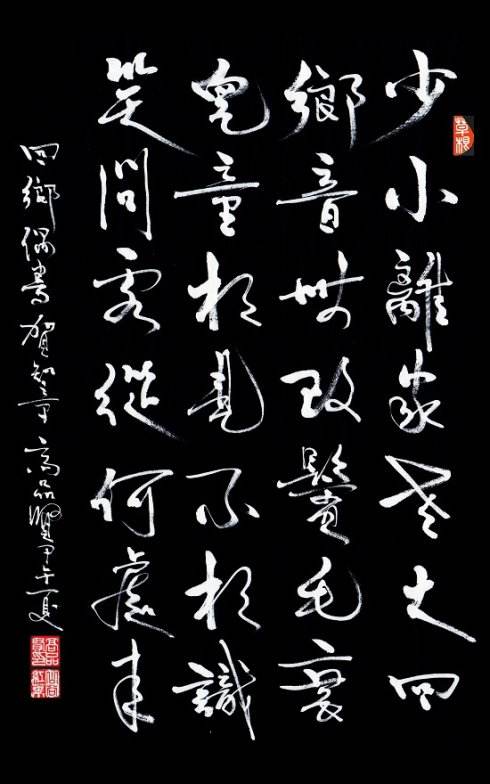 少小離家老大回
鄉音無改鬢毛衰
兒童相見不相識
笑問客從何處來
回鄉偶書 賀知章 高品賢甲午夏